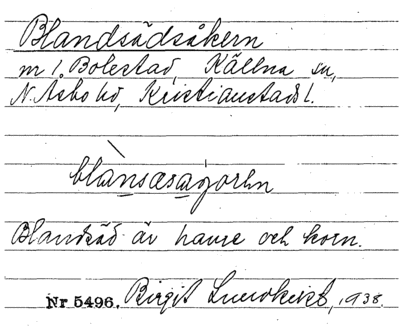 Blandsädsåkern
m 1. Bolestad, Källna sn,
N. Åsbo hd, Kristianstads l.
blànsæsagorhn
Blandsäd är havre och korn.
Nr 5496. Birgit Lundkvist, 1938.